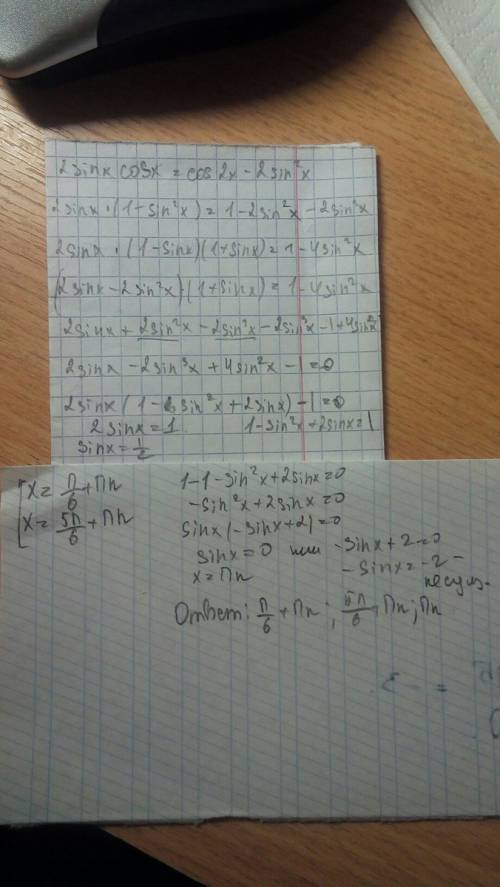 2sinx cosx = cos2x - 2sin²x
2sinx · (1 - sin²x) = 1 - 2sin²x - 2sin²x
2sinx · (1-sinx)(1+sinx) = 1 - 4sin²x
(2sinx - 2sin²x)·(1+sinx) = 1 - 4sin²x
2sinx + 2sin²x - 2sin²x - 2sin³x - 1 + 4sin²x
2sinx - 2sin³x + 4sin²x - 1 = 0
2sinx (1 - sin²x + 2sinx) - 1 = 0
2sinx = 1 1 - sin²x + 2sinx = 1
sinx = 1/2
x = π/6 + πn 1 - 1 - sin²x + 2sinx = 0
x = 5π/6 + πn -sin²x + 2sinx = 0
sinx (-sinx + 2) = 0
sinx = 0 или -sinx + 2 = 0
x = πn -sinx = -2 -
Ответ: π/6 + πn ; 5π/6 + πn ; πn